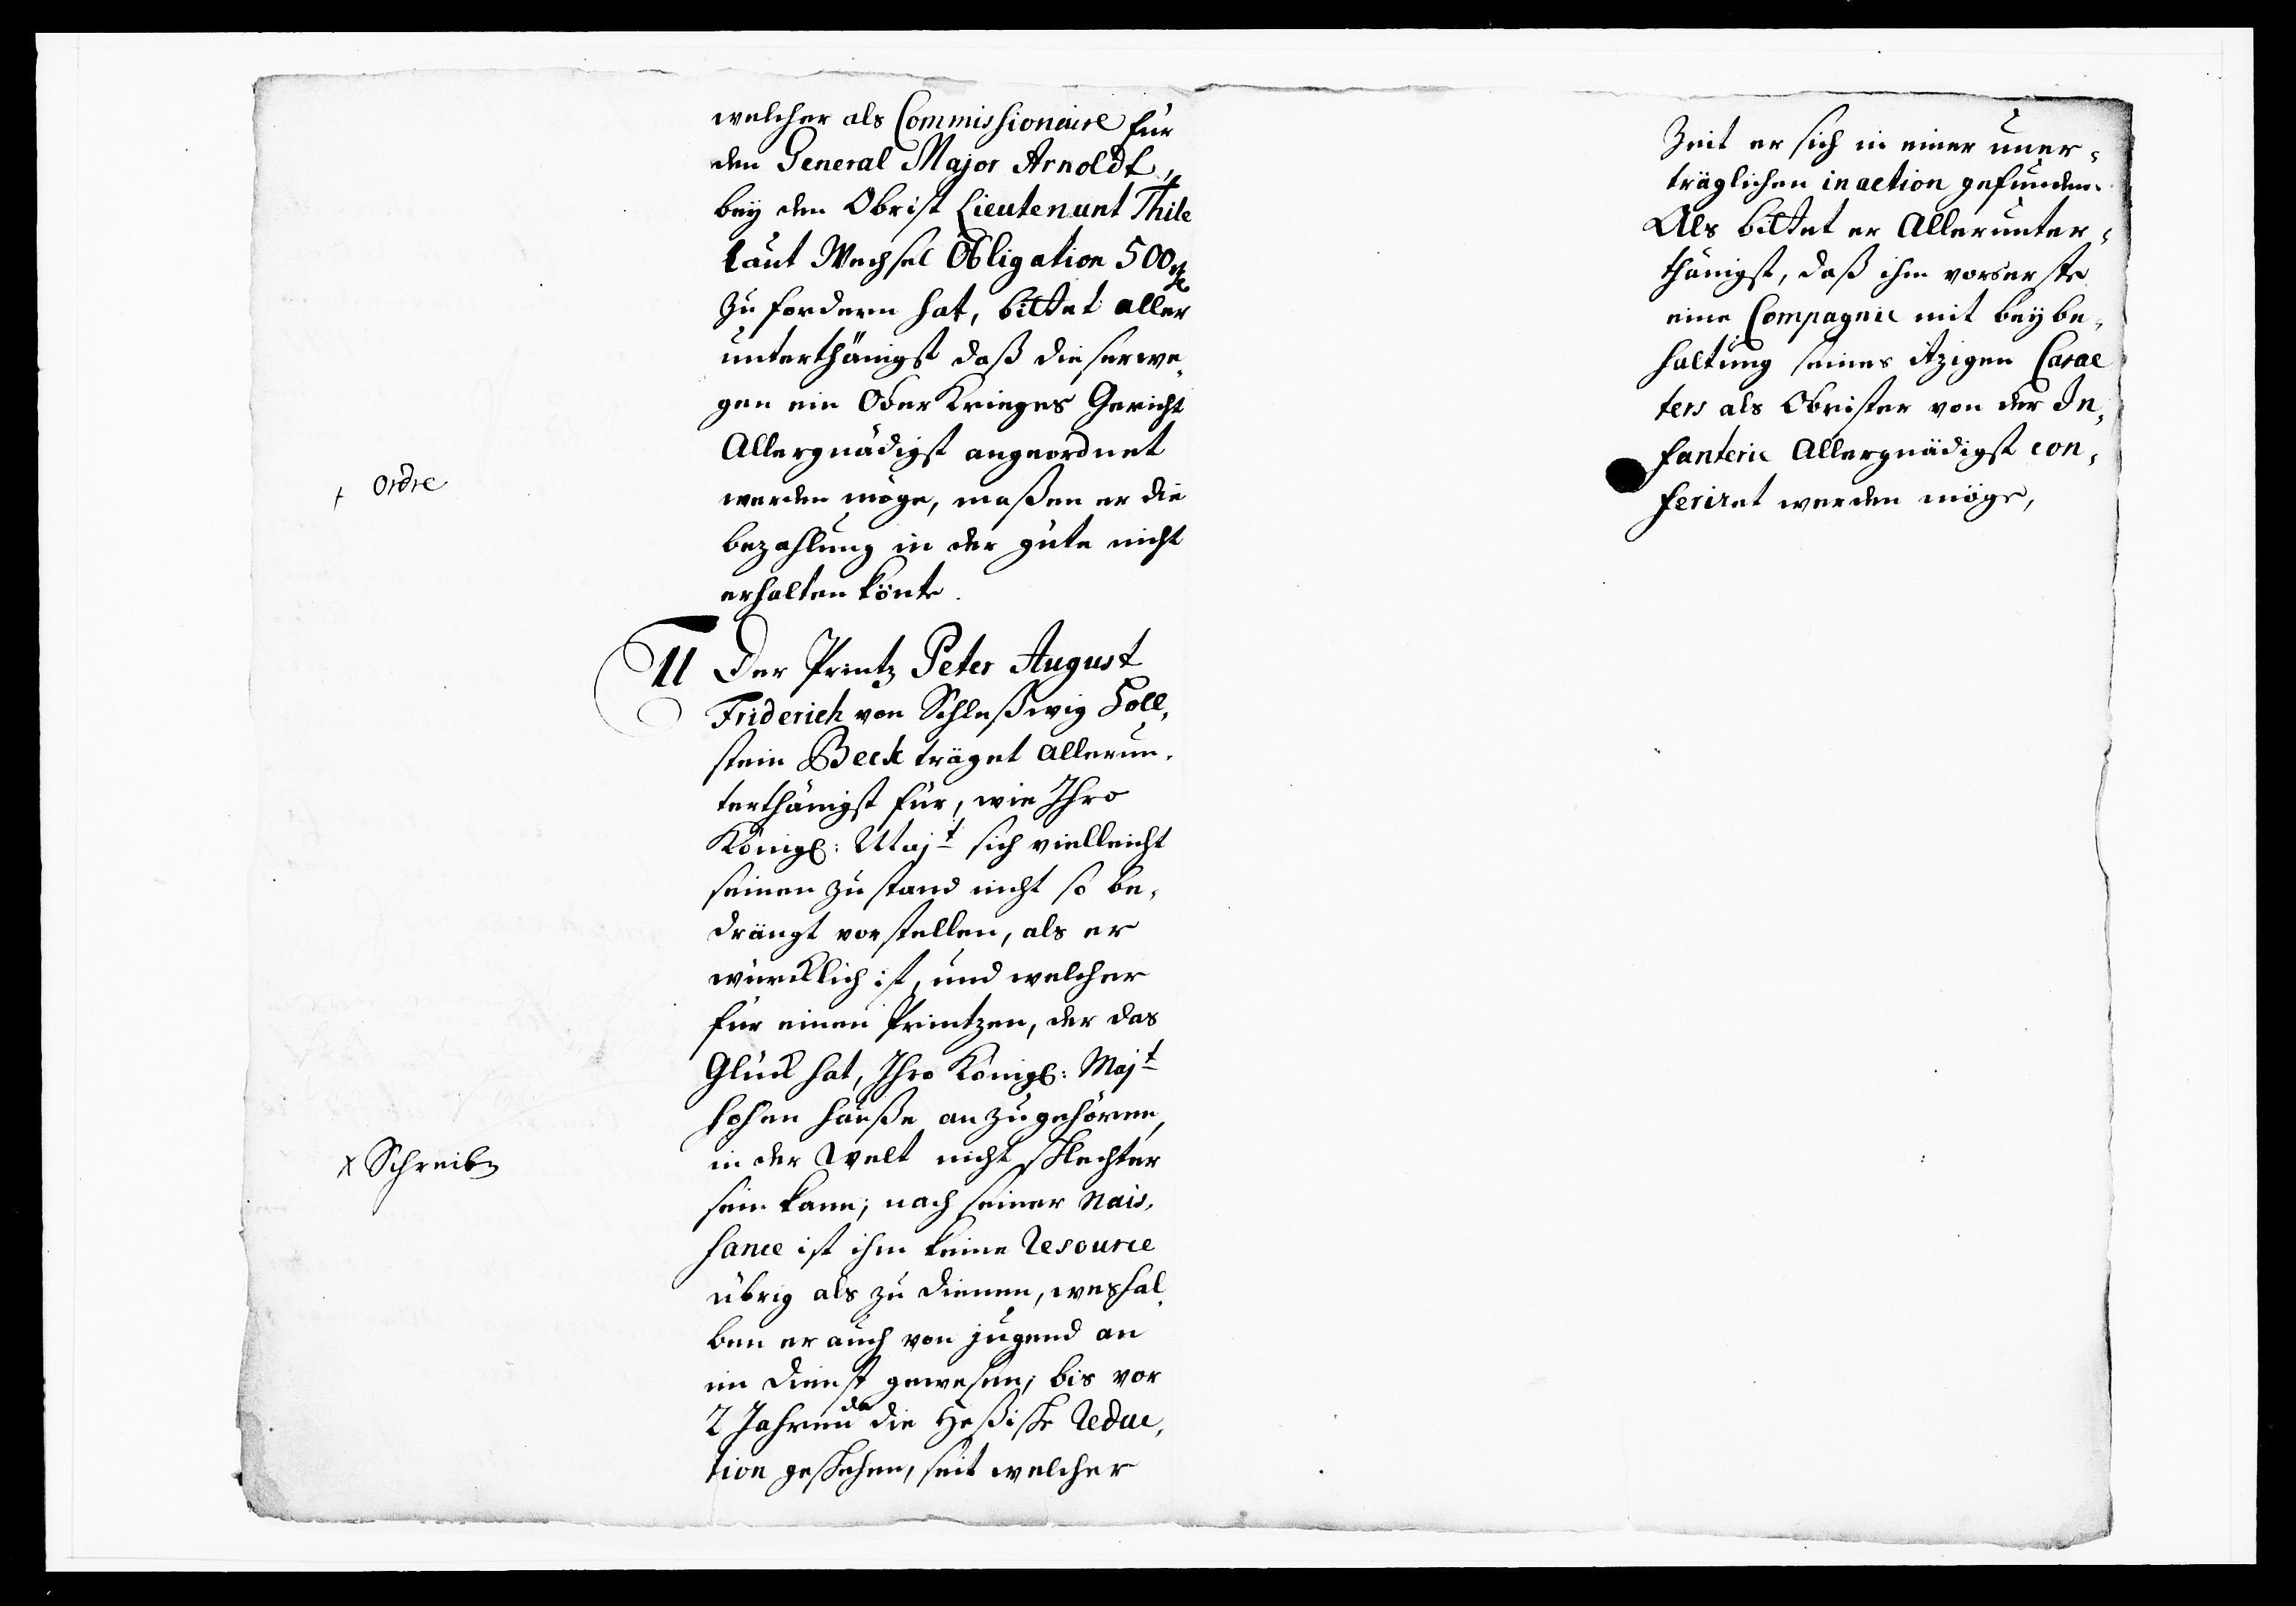 welcher als Commissionaire für
den General Major Arnoldt,
bey den Obrist Lieutenant Thile
laut Wechsel Obligation 500
zu fordern hat, bittet aller
unterthänigst daß dieserwe-
gen ein Ober Krieges Gericht
Allergnädigst angeordnet
+ Ordre
werden möge, maßen er die
bezahlung in der güte nicht
erhalten könte.
11 Der Printz Peter August
Friderich von Schleßwig Holl-
stein Beck träget allerun-
terthänigst für, wie Ihro
Königl: Majt sich vielleicht
seinen zustand nicht so be-
drängt vorstellen, als er
würcklich ist, und welcher
für einen Printzen, der das
Glück hat, Ihro Königl: Majt
hohen hauße anzugehören,
x Schreiben
in der Welt nicht schlechter
sein kann; nach seiner nais-
sance ist ihm keine resource
übrig als zu dienen, weshal-
ben er auch von jugend an
im dienst gewesen; bis vor
2 Jahren da die Heßische reduc-
tion geschehen, seit welcher
Zeit er sich in einer uner-
träglichen inaction gefunden.
Als bittet er Allerunter-
thänigst, daß ihm vorserste
eine Compagnie mit beybe-
haltung seines itzigen Carac
ters als Obrister von der In-
fanterie Allergnädigst con-
feriret werden möge,